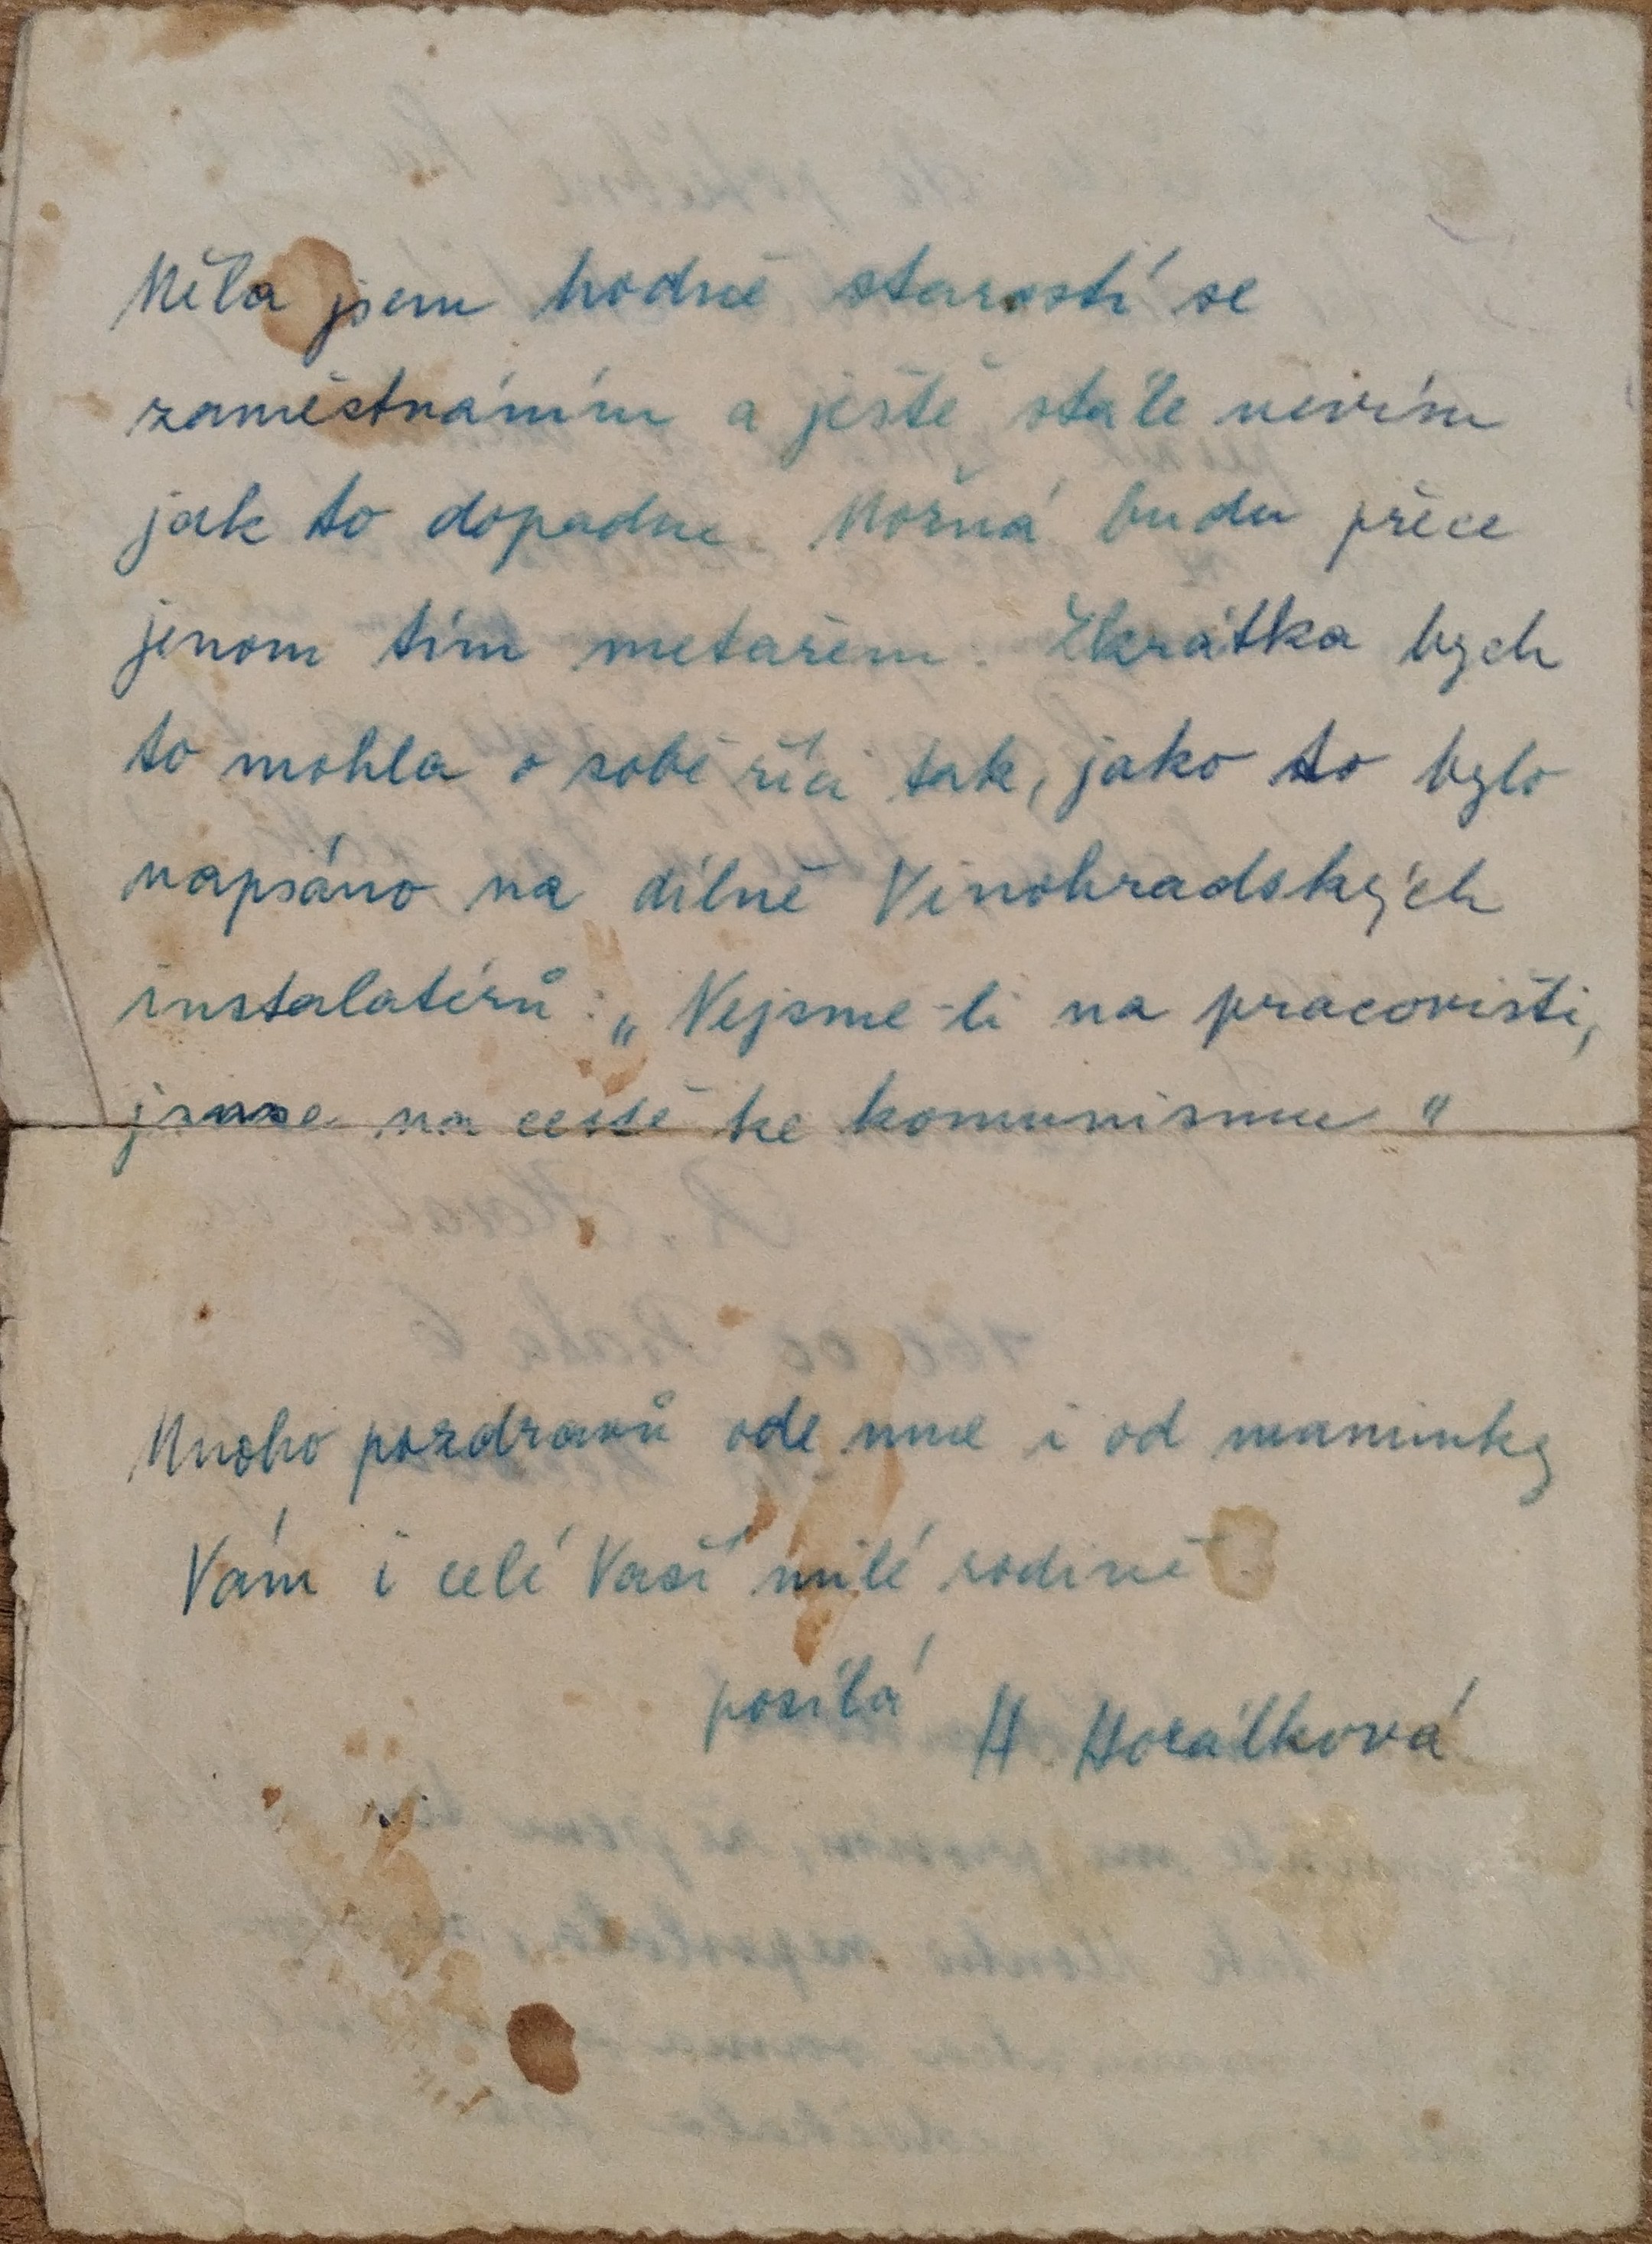 Měla jsem hodně starostí se
zaměstnáním a ještě stále nevím
jak to dopadne. Možná budu přece
jenom tím metařem. Zkrátka bych
to mohla o sobě říci tak, jako to bylo
napsáno na dílně Vinohradských
instalatérů: „Nejsme-li na pracovišti,
jsme na cestě ke komunismu"
Mnoho pozdravů ode mne i od maminky
Vám i celé Vaší milé rodině
posílá H. Horálková